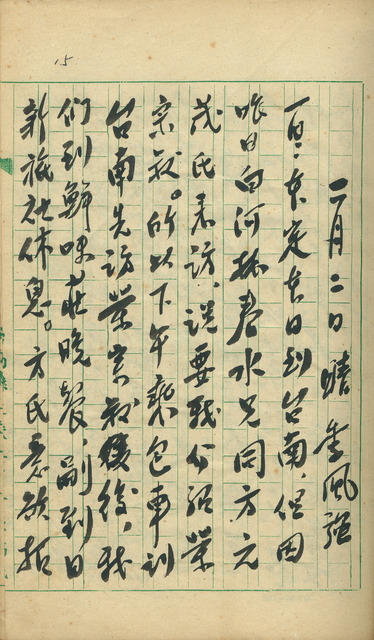 15
二月二日 晴 季風強
本定 日到台南,但因
昨日白河林春水兄同方元
茂氏来訪、説要我介紹葉
宗敏。所以下午乘包車到
台南先訪葉宗敏後,我
们到鮮味莊晚餐,到日
新旅社休息。方氏意欲拓